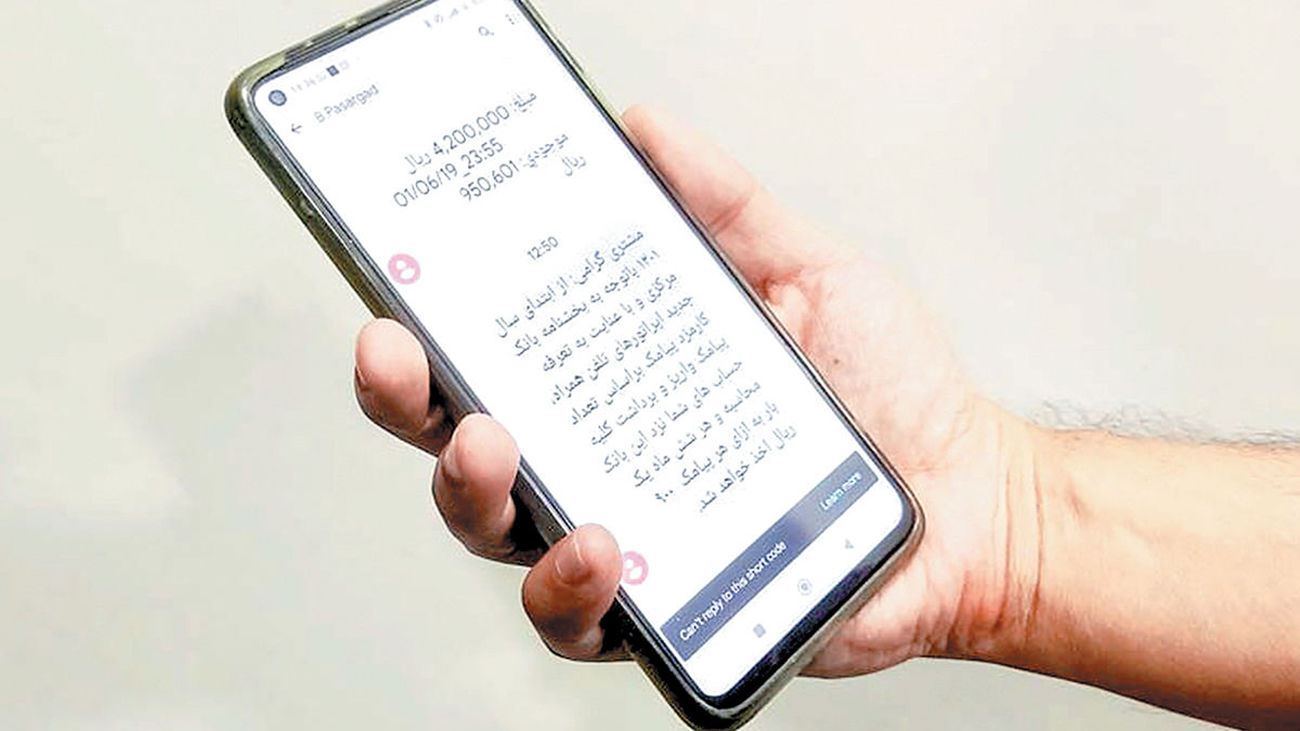 B.Pasargad
مبلغ: 4,200,000 ریال
01/06/19_23:55
موجودي: 950,601
ریال
12:50
مشتری گرامی: از ابتدای سال
۱۴۰۱ باتوجه به بخشنامه بانک
مرکزی و با عنایت به تعرفه
جدید اپراتورهای تلفن همراه،
کارمزد پیامک براساس تعداد
پیامک واریز و برداشت کلیه
حساب های شما نزد این بانک
محاسبه و هر شش ماه یک
بار به ازای هر پیامک ۹۰۰
ریال اخذ خواهد شد.
Can't reply to this short code
Learn more